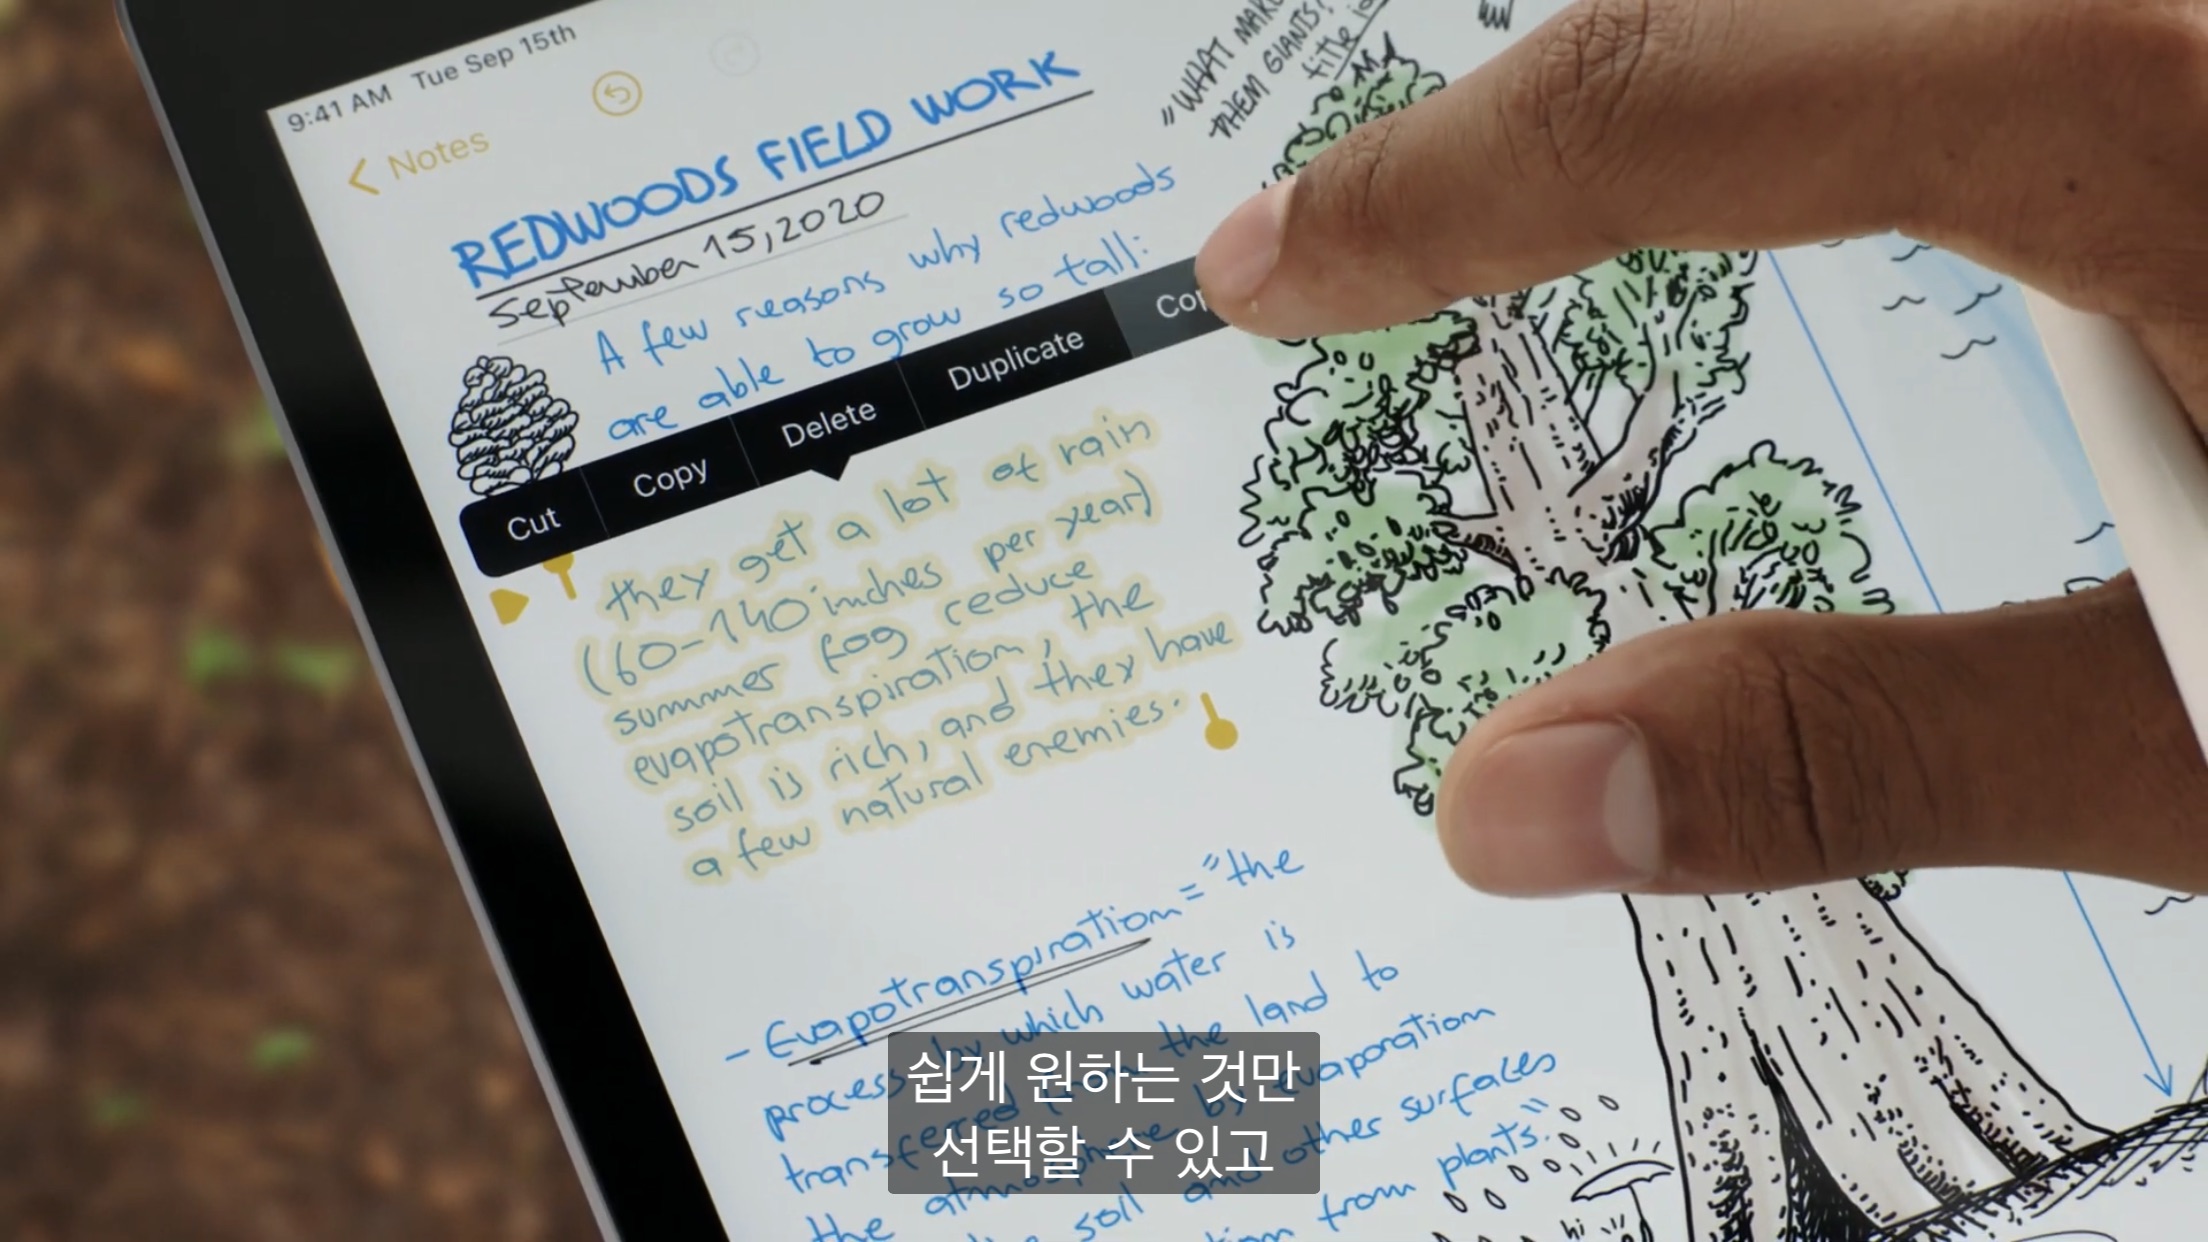 9:41 AM Tue Sep 15th
Notes
REDWOODS FIELD WORK
September 15, 2020
"WHAT
THEM GIANTS?
title
A few reasons why redwoods
are able to grow so tall:
Cut Copy Delete Duplicate
they get a lot of rain
(60-140 inches per year)
summer fog reduce
evapotranspiration, the
soil is rich, and they have
a few natural enemies.
- Evapotranspiration = "the
process by which water is
transferred the land to
the atmosphere by evaporation
soil and other surfaces
from plants."
hi
쉽게 원하는 것만
선택할 수 있고